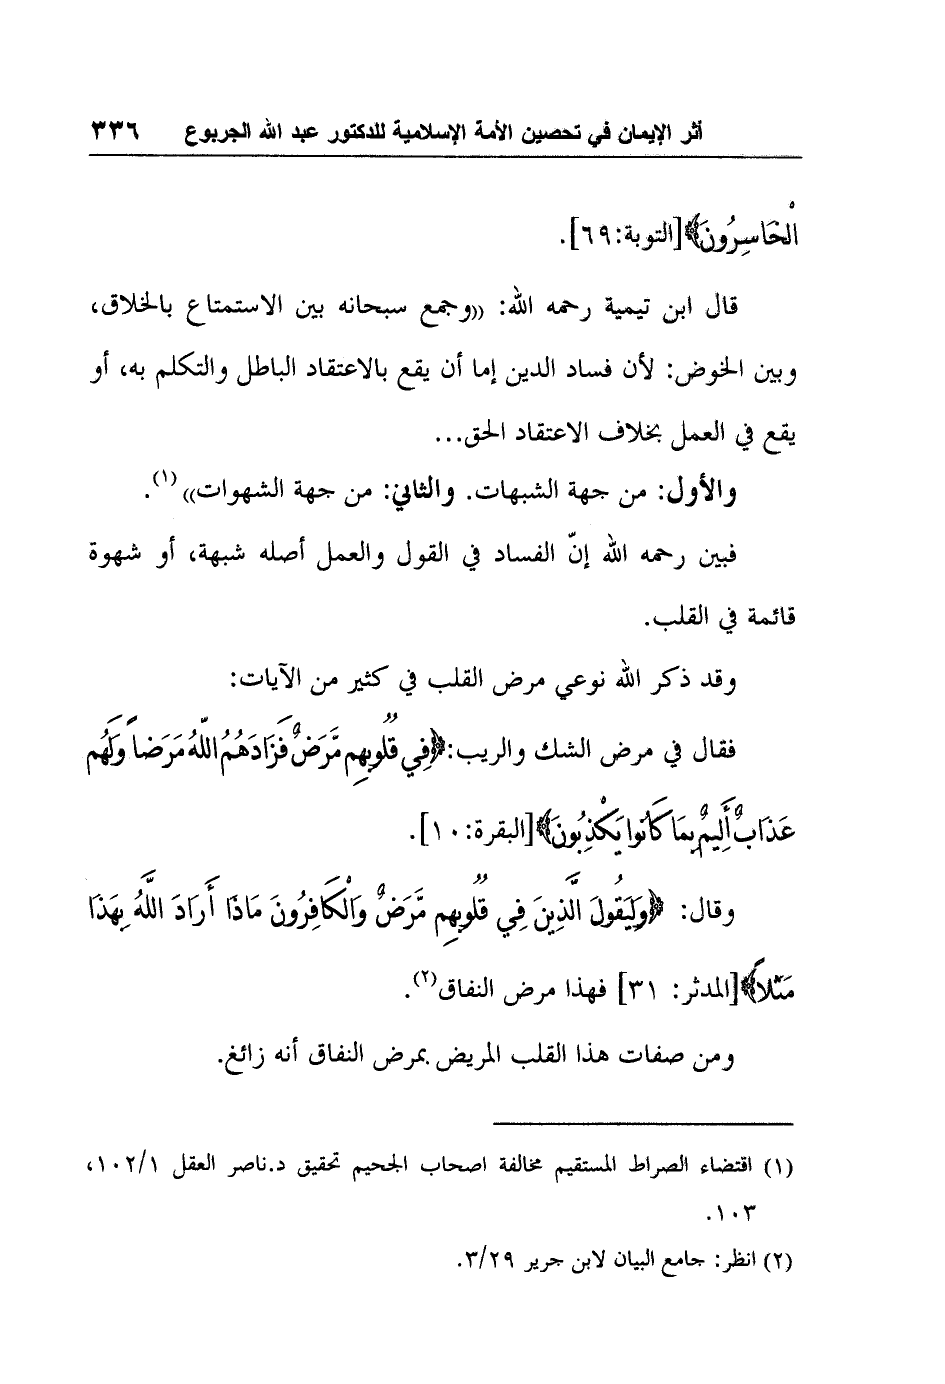 أثر الإيمان في تحصين الأمة الإسلامية للدكتور عبد الله الجربوع ٣٣٦
الْخَاسِرُونَ﴾[التوبة:٦٩].
قال ابن تيمية رحمه الله: ((وجمع سبحانه بين الاستمتاع بالخلاق،
وبين الخوض: لأن فساد الدين إما أن يقع بالاعتقاد الباطل والتكلم به، أو
يقع في العمل بخلاف الاعتقاد الحق...
والأول: من جهة الشبهات. والثاني: من جهة الشهوات))(١).
فبين رحمه الله إنّ الفساد في القول والعمل أصله شبهة، أو شهوة
قائمة في القلب.
وقد ذكر الله نوعي مرض القلب في كثير من الآيات:
فقال في مرض الشك والريب:﴿فِي قُلُوبِهِم مَّرَضٌ فَزَادَهُمُ اللَّهُ مَرَضاً وَلَهُم
عَذَابٌ أَلِيمٌ بِمَا كَانُوا يَكْذِبُونَ﴾[البقرة:١٠].
وقال: ﴿وَلِيَقُولَ الَّذِينَ فِي قُلُوبِهِم مَّرَضٌ وَالْكَافِرُونَ مَاذَا أَرَادَ اللَّهُ بِهَذَا
مَثَلاً﴾[المدثر: ٣١] فهذا مرض النفاق(٢).
ومن صفات هذا القلب المريض بمرض النفاق أنه زائغ.
(١) اقتضاء الصراط المستقيم مخالفة اصحاب الجحيم تحقيق د.ناصر العقل ١٠٢/١،
١٠٣.
(٢) انظر: جامع البيان لابن جرير ٣/٢٩.